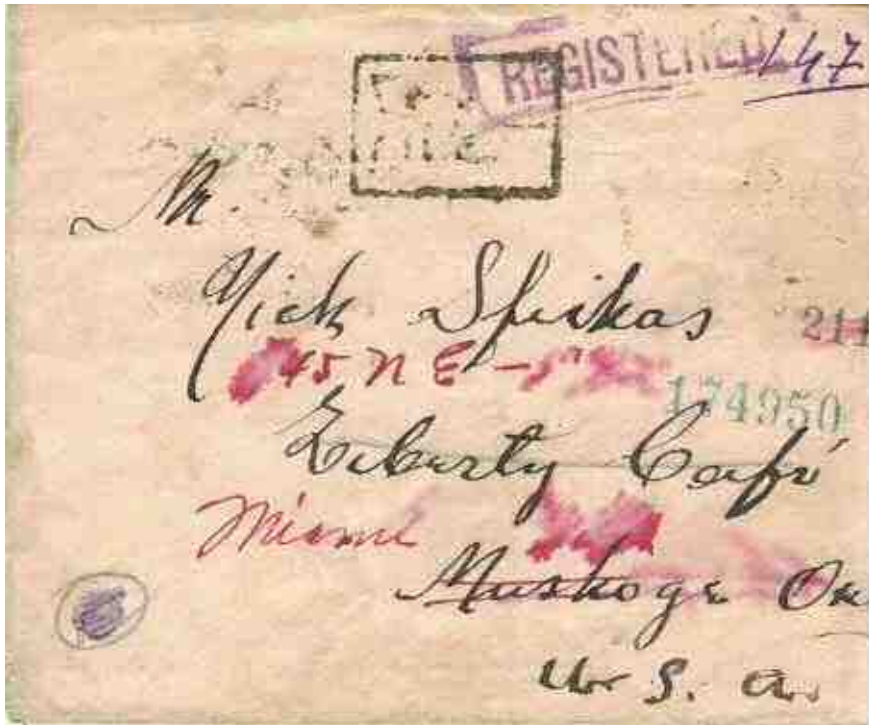 REGISTERED 447
Mr.
Nick Speikas
211
45 N E - 5
174950
Liberty Café
Miami
Muskoge
U. S. A.